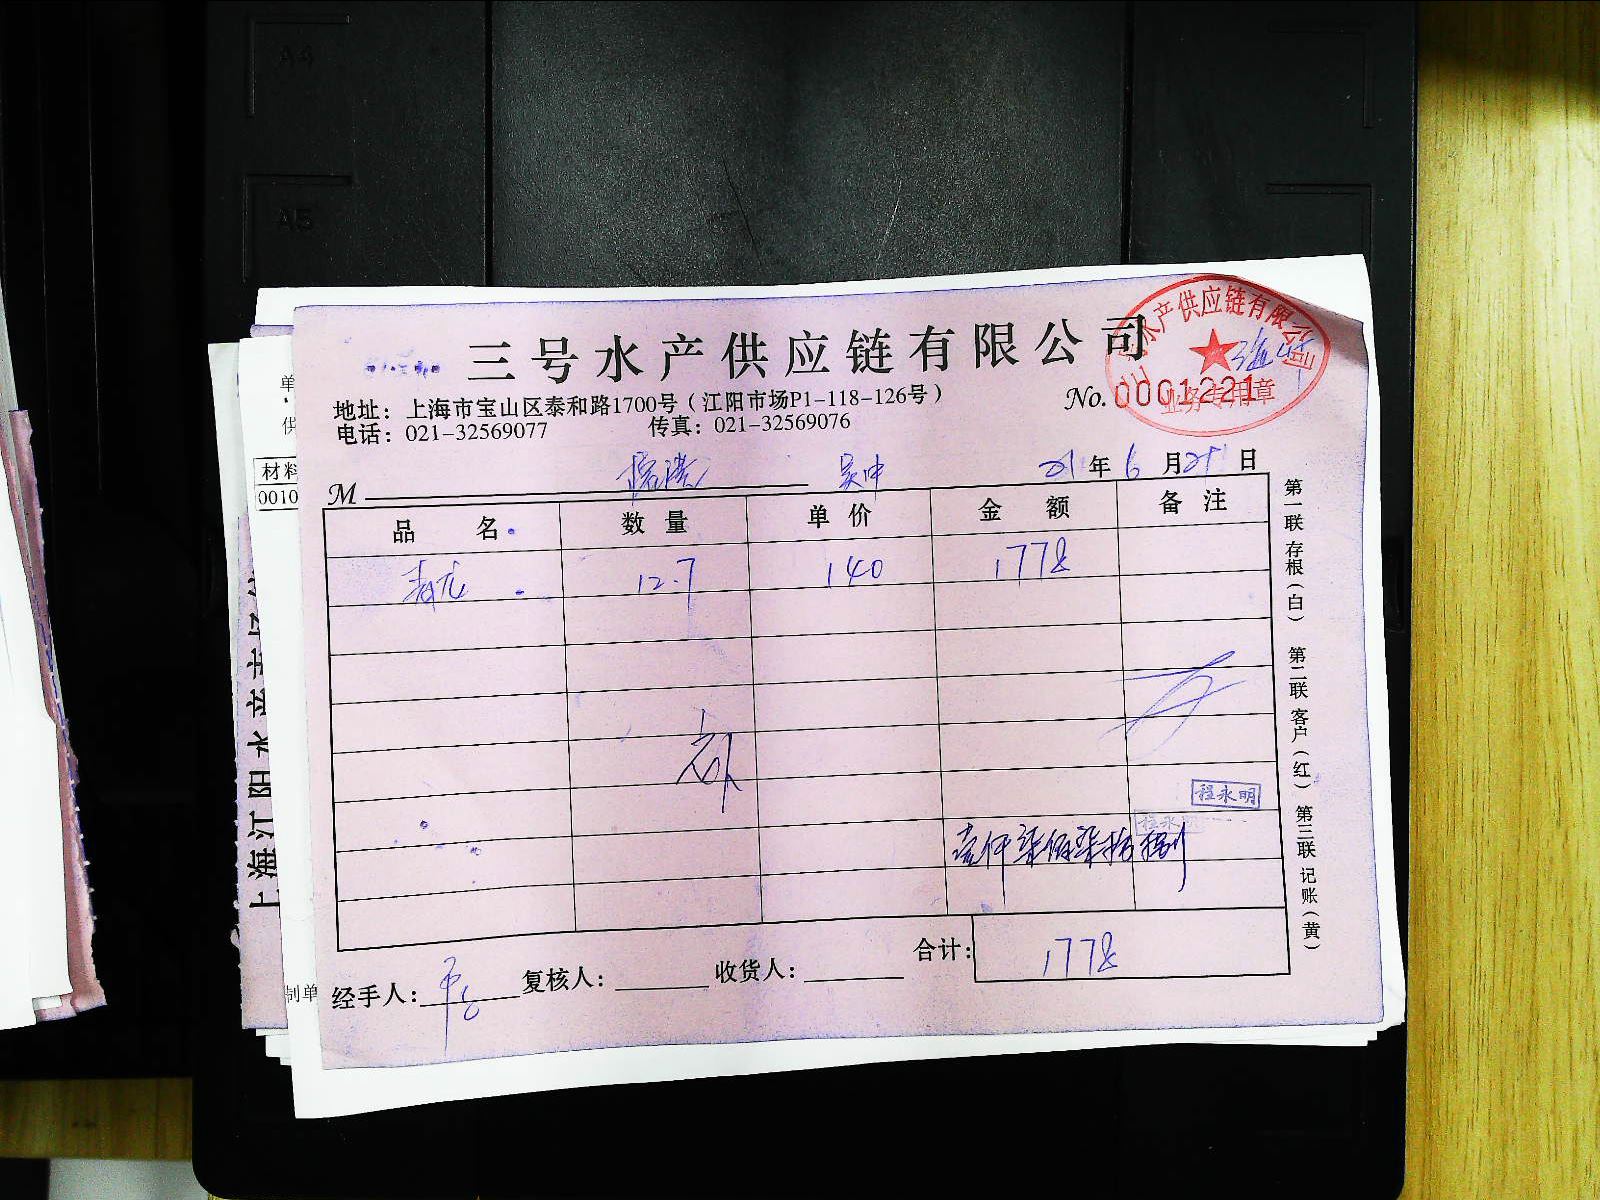 A4
A5
三号水产供应链有限公司
水产供应链有限公司
业务专用章
地址：上海市宝山区泰和路1700号（江阳市场P1-118-126号）
No. 0001221
电话：021-32569077 传真：021-32569076
M
21年6月25日
品名 数量 单价 金额 备注
青龙 12.7 140 1778
程永明
程永明
壹仟柒佰柒拾捌
合计：1778
经手人： 复核人： 收货人：
第一联 存根（白） 第二联 客户（红） 第三联 记账（黄）
单
供
材料
0010
制单
上海江阳水